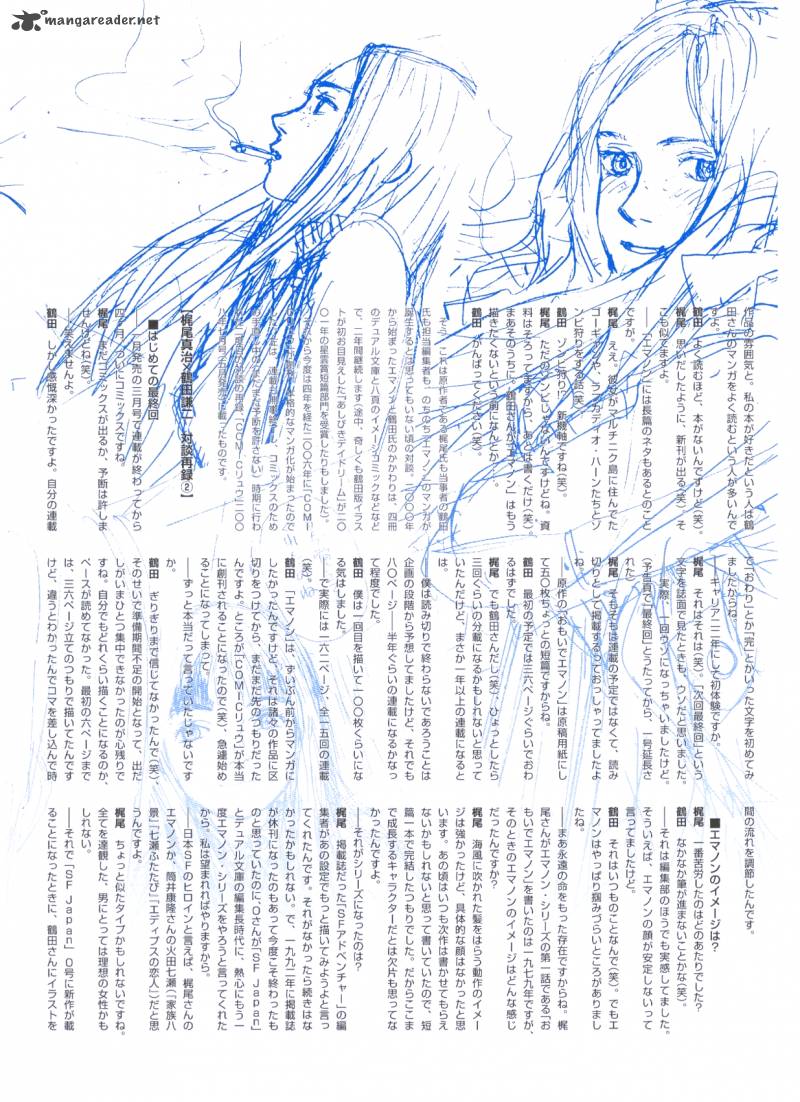 mangareader.net
作品の雰囲気と。私の本が好きだという人は鶴
田さんのマンガをよく読むという人が多いんで
すよ。
鶴田 よく読むほど、本がないんですけど(笑)。
梶尾 思いだしたように、新刊が出る(笑)。そ
こも似てますよ。
──「エマノン」には長篇のネタもあるとのこと
ですが。
梶尾 ええ。彼女がマルチニク島に住んでた
ゴーギャンや、ラフカディオ・ハーンたちとゾ
ンビ狩りをする話(笑)。
鶴田 ゾンビ狩り!? 新機軸ですね(笑)。
梶尾 ただのゾンビじゃないんですけどね。資
料はそろってますから、あとは書くだけ(笑)。
まあそのうちに。鶴田さんが「エマノン」はもう
描きたくないという前になんとか……。
鶴田 がんばってください(笑)。
そう、これは原作者である梶尾氏も当事者の鶴田
氏も担当編集者も、のちのち「エマノン」のマンガが
誕生するとは思ってもいない頃の対談。二〇〇〇年
から始まったエマノンと鶴田氏のかかわりは、四冊
のデュアル文庫と八頁のイメージコミックなどなど
で、二年間継続します(途中、奇しくも鶴田版イラス
トが初お目見えした『あしびきデイドリーム』が二〇
〇一年の星雲賞短篇部門を受賞したりもしました)。
【梶尾真治×鶴田謙二 対談再録②】
■はじめての最終回
──一月発売の三月号で連載が終わってから
四ヶ月、ついにコミックスですね。
梶尾 まだコミックスが出るか、予断は許しま
せんけどね(笑)。
──笑えませんよ。
鶴田 しかし感慨深かったですよ。自分の連載
で「おわり」とか「完」とかいった文字を初めてみ
ましたからね。
──キャリア二二年にして初体験ですか。
梶尾 それはそれは(笑)。「次回最終回」という
文字を誌面で見たときも、ウソだと思いました。
──実際、一回ウソになっちゃいましたけど。
(予告頁で「最終回」とうたってから、一号延長さ
れた)
梶尾 そもそもは連載の予定ではなくて、読み
切りとして掲載するっておっしゃってましたよ
ね。
──原作の『おもいでエマノン』は原稿用紙にし
て五〇枚ちょっとの短篇ですからね。
鶴田 最初の予定では三六ページぐらいでおわ
るはずでした。
梶尾 でも鶴田さんだし(笑)、ひょっとしたら
三回ぐらいの分載になるかもしれないと思って
いたんだけど、まさか一年以上の連載になると
は。
──僕は読み切りで終わらないであろうことは
企画の段階から予想してましたけど、それでも
八〇ページ──半年ぐらいの連載になるかなっ
て程度でした。
鶴田 僕は一回目を描いて一〇〇枚くらいにな
る気はしました。
──で実際には一六二ページ、全一五回の連載
(笑)。
鶴田 「エマノン」は、ずいぶん前からマンガに
したかったんですけど、それは諸々の作品に区
切りをつけてから、まだまだ先のつもりだった
んですよ。ところが「COMICリュウ」が本当
に創刊されることになったので(笑)、急遽始め
ることになってしまって。
──ずっと本当だって言っていたじゃないです
か。
鶴田 ぎりぎりまで信じてなかったんで(笑)、
そのせいで準備期間不足の開始となって、出だ
しがいまひとつ集中できなかったのが心残りで
すね。自分でもどれくらい描くことになるのか、
ペースが読めてなかった。最初の六ページまで
は、三六ページ立てのつもりで描いてたんです
けど、違うとわかったんでコマを差し込んで時
間の流れを調節したんです。
■エマノンのイメージは?
梶尾 一番苦労したのはどのあたりでした?
鶴田 なかなか筆が進まないことかな(笑)。
──それは編集部のほうでも実感してました。
そういえば、エマノンの顔が安定しないって
言ってましたけど。
鶴田 それはいつものことなんで(笑)。でもエ
マノンはやっぱり掴みづらいところがありまし
たね。
──まあ永遠の命をもった存在ですからね。梶
尾さんがエマノン・シリーズの第一話である「お
もいでエマノン」を書いたのは一九七九年ですが、
そのときのエマノンのイメージはどんな感じ
だったんですか?
梶尾 海風に吹かれた髪をはらう動作のイメー
ジは強かったけど、具体的な顔はなかったと思
います。あの頃はいつも次作は書かせてもらえ
ないかもしれないと思って書いていたので、短
篇一本で完結したつもりでした。だからここま
で成長するキャラクターだとは欠片も思ってな
かったんですよ。
──それがシリーズになったのは?
梶尾 掲載誌だった「SFアドベンチャー」の編
集者があの設定でもっと描いてみようよと言っ
てくれたんです。それがなかったら続きはな
かったかもしれない。で、一九九二年に掲載誌
が休刊になったのもあって今度こそ終わったも
のと思っていたのに、Oさんが「SF Japan」
とデュアル文庫の編集長時代に、熱心にもう一
度エマノン・シリーズをやろうと言ってくれた
から。私は望まれればやりますから。
──日本SFのヒロインと言えば、梶尾さんの
エマノンか、筒井康隆さんの火田七瀬(『家族八
景』『七瀬ふたたび』『エディプスの恋人』)だと思
うんですよ。
梶尾 ちょっと似たタイプかもしれないですね。
全てを達観した、男にとっては理想の女性かも
しれない。
──それで「SF Japan」0号に新作が載
ることになったときに、鶴田さんにイラストを